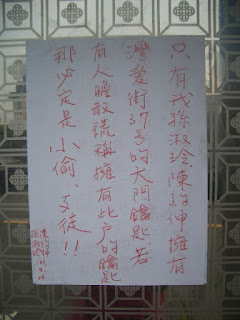 只有我孫淑玲陳紹伸擁有
灣愛街37号的大门鑰匙,若
有人瞻敢謊稱擁有此户的鑰匙
那必定是小偷、歹徒!!